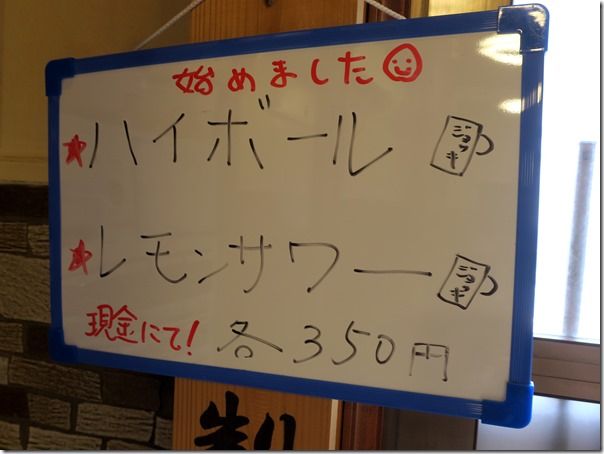 始めました
★ハイボール ジョッキ
★レモンサワー ジョッキ
現金にて! 各350円
制